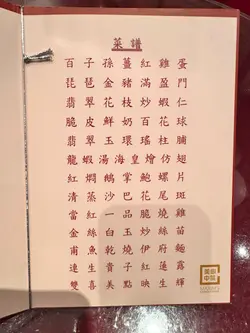 菜譜
百子孫薑紅雞蛋
琵琶金豬滿盈門
翡翠花枝炒蝦仁
脆皮鮮奶百花球
翡翠玉環瑤柱脯
龍蝦湯海皇燴仿翅
紅燜鵝掌鮑尾片
清蒸沙巴花尾斑
當紅脆燒雞
金絲炒絲苗
甫魚乾燒伊府麵
連生貴子紅蓮露
雙喜美點映生輝